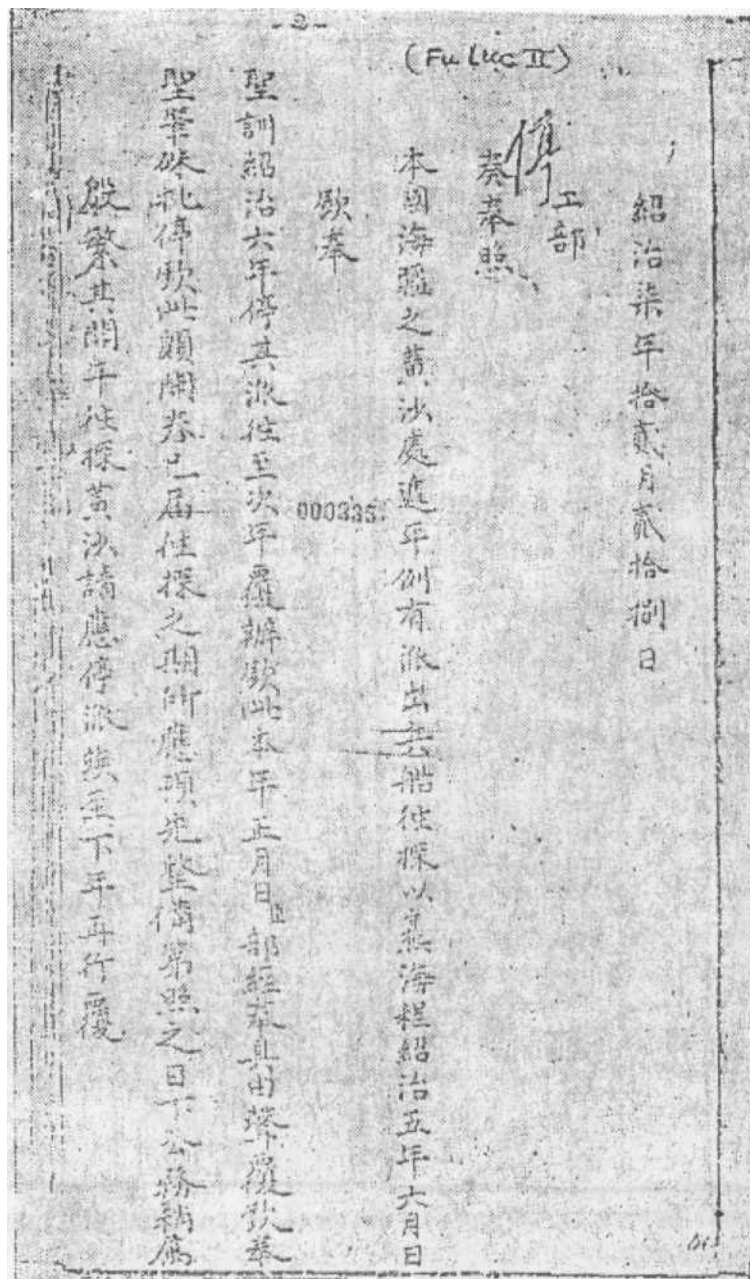 -2-
(Fu Luc II)
紹治柒年拾貳月貳拾捌日
工部
停
奏奉照
本國海疆之黃沙處遞年例有派出兵船往探以熟海程紹治五年六月日
欽奉
聖訓紹治六年停其派往至次年覆辦欽此本年正月日臣部經奉具由聲覆欽奉
聖筆硃批停欽此額關春一屆往探之期所應須先整備第照之日下公務稍屬
殷繁其開年往探黃沙請應停派竢至下年再行覆
000335